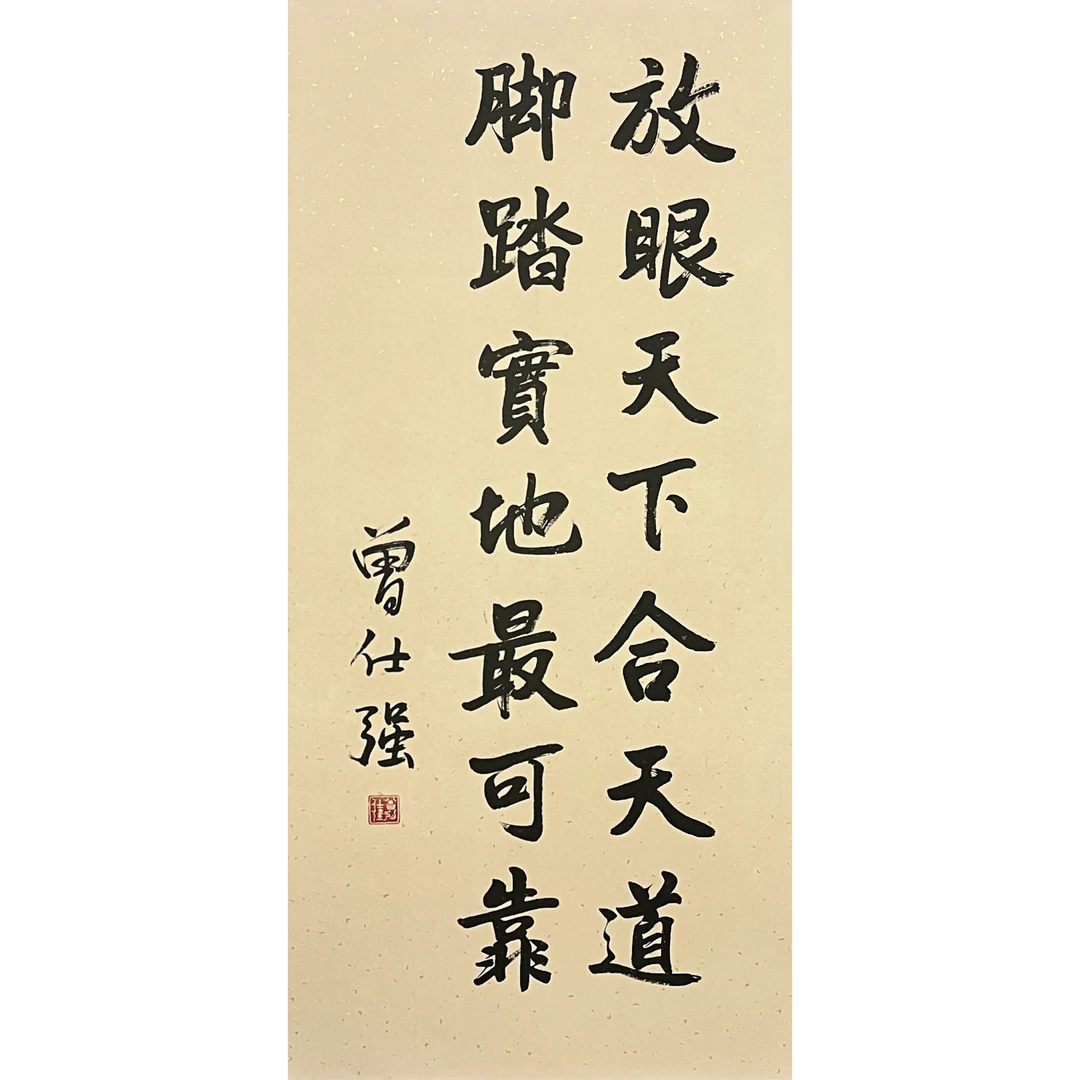 放眼天下合天道
脚踏實地最可靠
曾仕强